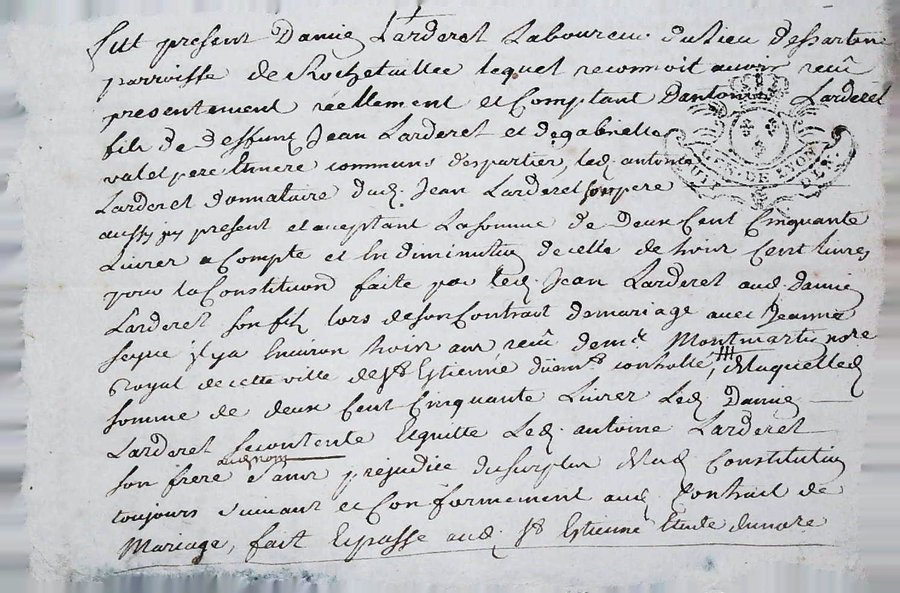 fut present Damie Larderet Laboureur du lieu despartene
parroisse de Rochetaillee lequel reconnoit avoir receû
presentement reellement et Comptant Dantoine Larderet
fils de deffunt Jean Larderet et de gabrielle
valet pere & mere communs d'espartier, led. antoine
Larderet donnataire dud. Jean Larderet son pere
aussy jcy present et acceptant La somme de Deux Cent Cinquante
Livres a Compte et En diminution de celle de trois Cent livres
pour la Constitution faite par led. Jean Larderet aud. Damie
Larderet son fils lors de son Contrait de mariage avec Jeanne
seyve il y a Environ trois ans receû de me. Montmartin nore
Royal de cette ville de St Estienne düemt. controllé, de laquelle
somme de deux Cent Cinquante Livres Led. Damie
Larderet se contente Et quitte Led. antoine Larderet
aud. nom
son frere sans prejudice du surplus de lad. Constitution
toujours suivant et Conformement aud. Contrait de
Mariage, fait Et passé aud. St Estienne Etude du nore
GEN. DE LYON